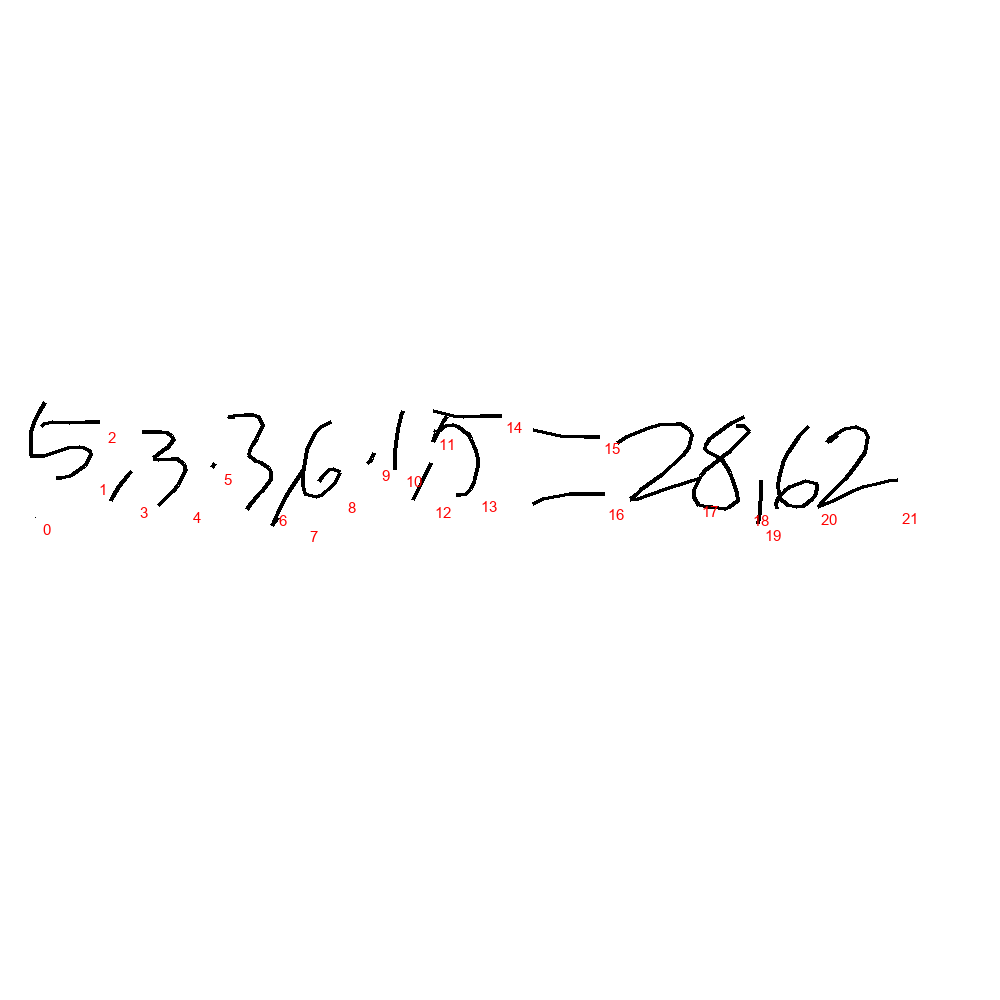 5,3·3,6·1,5=28,62
0 1 2 3 4 5 6 7 8 9 10 11 12 13 14 15 16 17 18 19 20 21